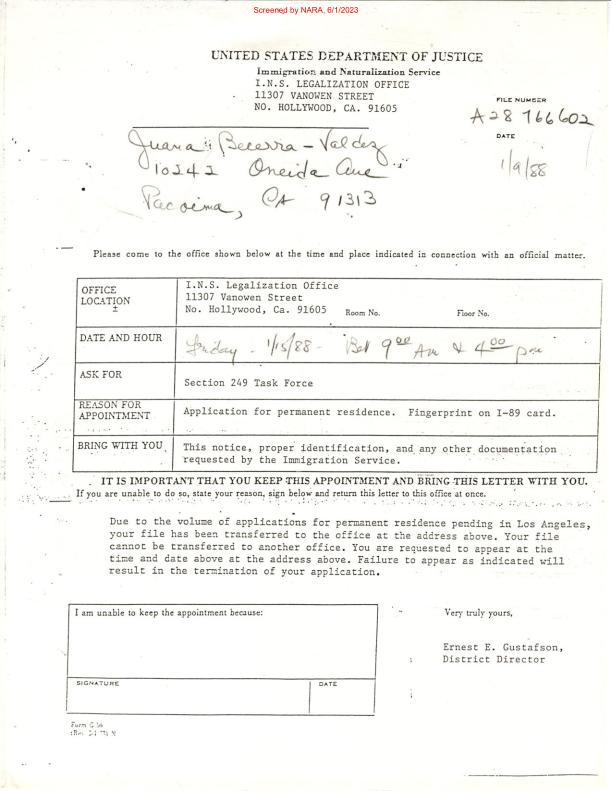 Screened by NARA, 6/1/2023
UNITED STATES DEPARTMENT OF JUSTICE
Immigration and Naturalization Service
I.N.S. LEGALIZATION OFFICE
11307 VANOWEN STREET
NO. HOLLYWOOD, CA. 91605
FILE NUMBER
A28 766602
DATE
1/9/88
Juana Becerra-Valdez
10242 Oneida Ave
Pacoima, CA 91313
Please come to the office shown below at the time and place indicated in connection with an official matter.
OFFICE LOCATION
I.N.S. Legalization Office
11307 Vanowen Street
No. Hollywood, Ca. 91605 Room No. Floor No.
DATE AND HOUR
Friday - 1/15/88 - Bet 9:00 Am & 4:00 pm
ASK FOR
Section 249 Task Force
REASON FOR APPOINTMENT
Application for permanent residence. Fingerprint on I-89 card.
BRING WITH YOU
This notice, proper identification, and any other documentation
requested by the Immigration Service.
IT IS IMPORTANT THAT YOU KEEP THIS APPOINTMENT AND BRING THIS LETTER WITH YOU.
If you are unable to do so, state your reason, sign below and return this letter to this office at once.
Due to the volume of applications for permanent residence pending in Los Angeles,
your file has been transferred to the office at the address above. Your file
cannot be transferred to another office. You are requested to appear at the
time and date above at the address above. Failure to appear as indicated will
result in the termination of your application.
I am unable to keep the appointment because:
Very truly yours,
Ernest E. Gustafson,
District Director
SIGNATURE
DATE
Form G-56